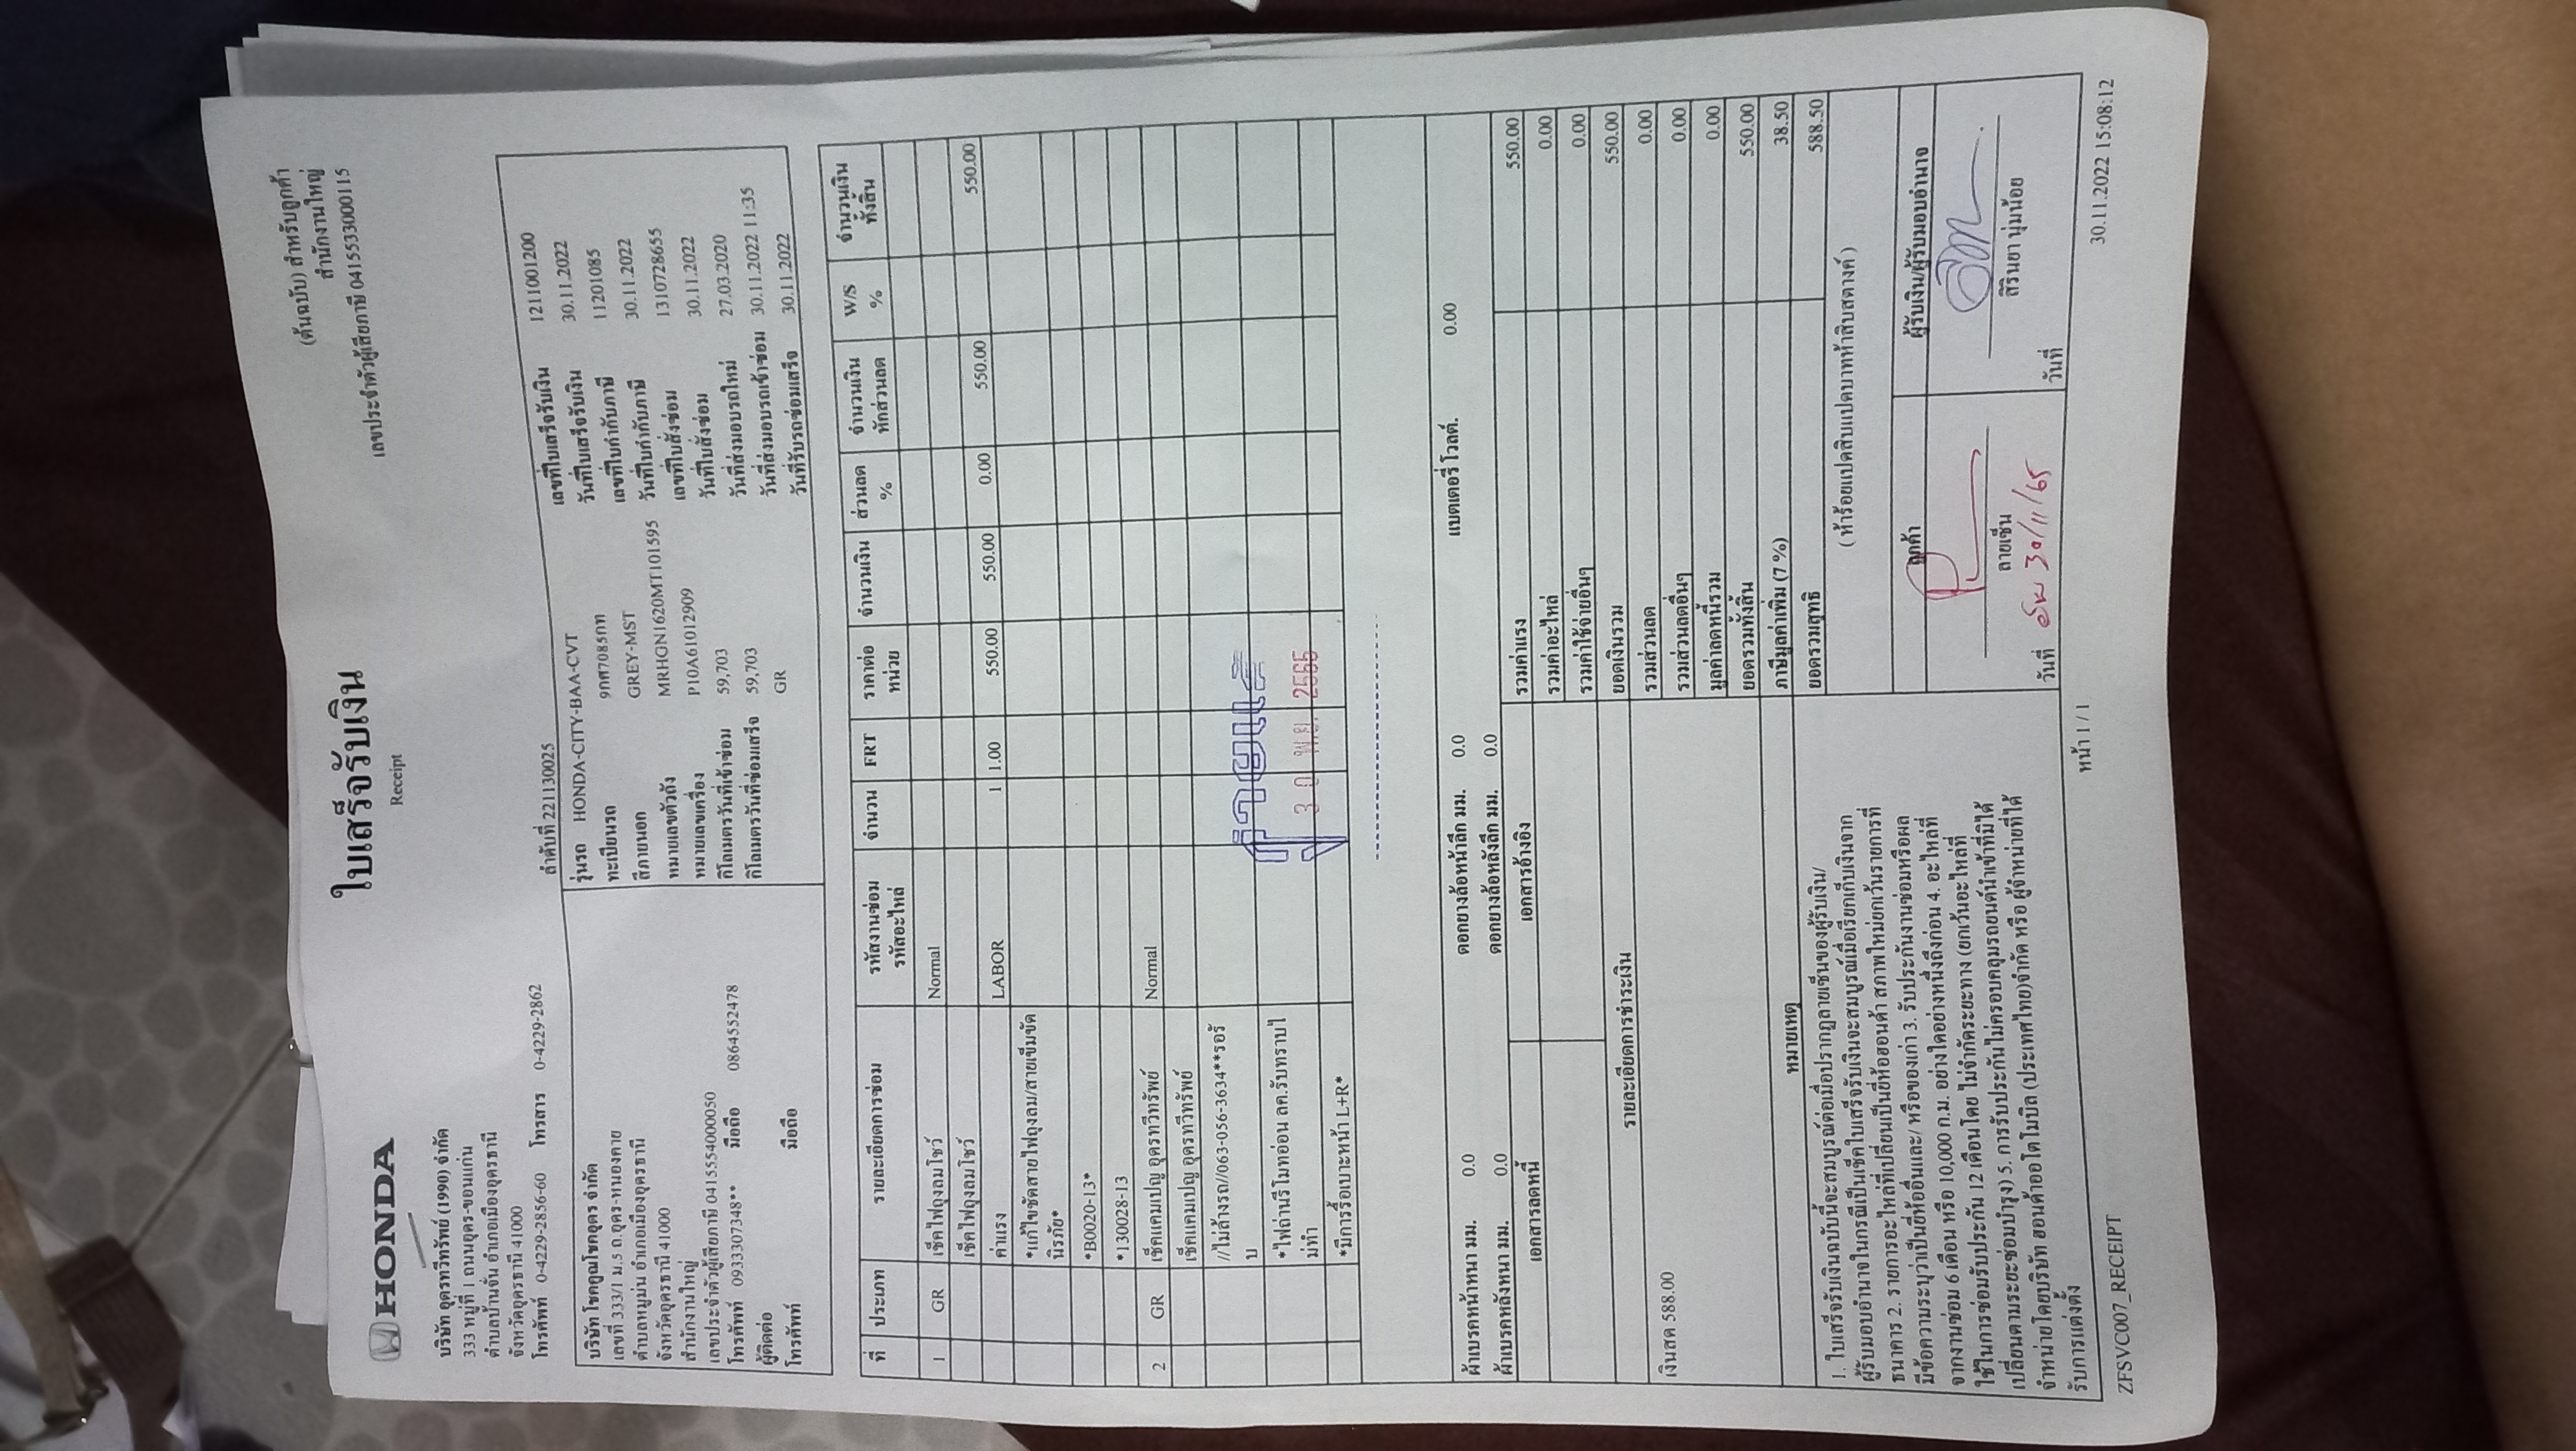 HONDA
ใบเสร็จรับเงิน
Receipt
(ต้นฉบับ) สำหรับลูกค้า
สำนักงานใหญ่
เลขประจำตัวผู้เสียภาษี 0415533000115
บริษัท อุดรทวีทรัพย์ (1990) จำกัด
333 หมู่ที่ 1 ถนนอุดร-ขอนแก่น
ตำบลบ้านจั่น อำเภอเมืองอุดรธานี
จังหวัดอุดรธานี 41000
โทรศัพท์ 0-4229-2856-60 โทรสาร 0-4229-2862
ลำดับที่ 221130025
บริษัท โชคคูณโชคอุดร จำกัด
เลขที่ 333/1 ม.5 ถ.อุดร-หนองคาย
ตำบลหมูม่น อำเภอเมืองอุดรธานี
จังหวัดอุดรธานี 41000
สำนักงานใหญ่
เลขประจำตัวผู้เสียภาษี 0415554000050
โทรศัพท์ 0933307348** มือถือ 0864552478
ผู้ติดต่อ
โทรศัพท์ มือถือ
รุ่นรถ HONDA-CITY-BAA-CVT
ทะเบียนรถ 9กศ7085กท
สีภายนอก GREY-MST
หมายเลขตัวถัง MRHGN1620MT101595
หมายเลขเครื่อง P10A61012909
กิโลเมตรวันที่เข้าซ่อม 59,703
กิโลเมตรวันที่ซ่อมเสร็จ 59,703
GR
เลขที่ใบเสร็จรับเงิน 1211001200
วันที่ใบเสร็จรับเงิน 30.11.2022
เลขที่ใบกำกับภาษี 11201085
วันที่ใบกำกับภาษี 30.11.2022
เลขที่ใบสั่งซ่อม 1310728655
วันที่ใบสั่งซ่อม 30.11.2022
วันที่ส่งมอบรถใหม่ 27.03.2020
วันที่ส่งมอบรถเข้าซ่อม 30.11.2022 11:35
วันที่รับรถซ่อมเสร็จ 30.11.2022
ที่ ประเภท รายละเอียดการซ่อม รหัสงานซ่อม รหัสอะไหล่ จำนวน FRT ราคาต่อหน่วย จำนวนเงิน ส่วนลด % จำนวนเงินหักส่วนลด W/S % จำนวนเงินทั้งสิ้น
1 GR เช็คไฟถุงลมโชว์ Normal
เช็คไฟถุงลมโชว์
ค่าแรง LABOR 1 1.00 550.00 550.00 0.00 550.00 550.00
*แก้ไขขัดสายไฟถุงลม/สายเข็มขัด
นิรภัย*
*B0020-13*
*130028-13
2 GR เช็คแคมเปญ อุดรทวีทรัพย์ Normal
เช็คแคมเปญ อุดรทวีทรัพย์
//ไม่ล้างรถ//063-056-3634**รอรั
บ
*ไฟถ่านรีโมทอ่อน ลค.รับทราบไ
ม่ทำ
*มีการรื้อเบาะหน้า L+R*
จ่ายแล้ว
30 พ.ย. 2565
ผ้าเบรคหน้าหนา มม. 0.0 ดอกยางล้อหน้าลึก มม. 0.0 แบตเตอรี่ โวลต์. 0.00
ผ้าเบรคหลังหนา มม. 0.0 ดอกยางล้อหลังลึก มม. 0.0
เอกสารลดหนี้ เอกสารอ้างอิง
รายละเอียดการชำระเงิน
เงินสด 588.00
รวมค่าแรง 550.00
รวมค่าอะไหล่ 0.00
รวมค่าใช้จ่ายอื่นๆ 0.00
ยอดเงินรวม 550.00
รวมส่วนลด 0.00
รวมส่วนลดอื่นๆ 0.00
มูลค่าลดหนี้รวม 0.00
ยอดรวมทั้งสิ้น 550.00
ภาษีมูลค่าเพิ่ม (7 %) 38.50
ยอดรวมสุทธิ 588.50
( ห้าร้อยแปดสิบแปดบาทห้าสิบสตางค์ )
หมายเหตุ
1. ใบเสร็จรับเงินฉบับนี้จะสมบูรณ์ต่อเมื่อปรากฏลายเซ็นของผู้รับเงิน/
ผู้รับมอบอำนาจในกรณีเป็นเช็คใบเสร็จรับเงินจะสมบูรณ์เมื่อเรียกเก็บเงินจาก
ธนาคาร 2. รายการอะไหล่ที่เปลี่ยนเป็นยี่ห้อฮอนด้า สภาพใหม่ยกเว้นรายการที่
มีข้อความระบุว่าเป็นยี่ห้ออื่นและ/ หรือของเก่า 3. รับประกันงานซ่อมหรือผล
จากงานซ่อม 6 เดือน หรือ 10,000 ก.ม. อย่างใดอย่างหนึ่งถึงก่อน 4. อะไหล่ที่
ใช้ในการซ่อมรับประกัน 12 เดือนโดย ไม่จำกัดระยะทาง (ยกเว้นอะไหล่ที่
เปลี่ยนตามระยะซ่อมบำรุง) 5. การรับประกันไม่ครอบคลุมรถยนต์นำเข้าที่มิได้
จำหน่ายโดยบริษัท ฮอนด้าออโตโมบิล (ประเทศไทย)จำกัด หรือ ผู้จำหน่ายที่ได้
รับการแต่งตั้ง
ลูกค้า
ลายเซ็น
วันที่ 30/11/65
ผู้รับเงิน/ผู้รับมอบอำนาจ
สิรินยา นุ่มน้อย
วันที่
ZFSVC007_RECEIPT หน้า 1 / 1 30.11.2022 15:08:12